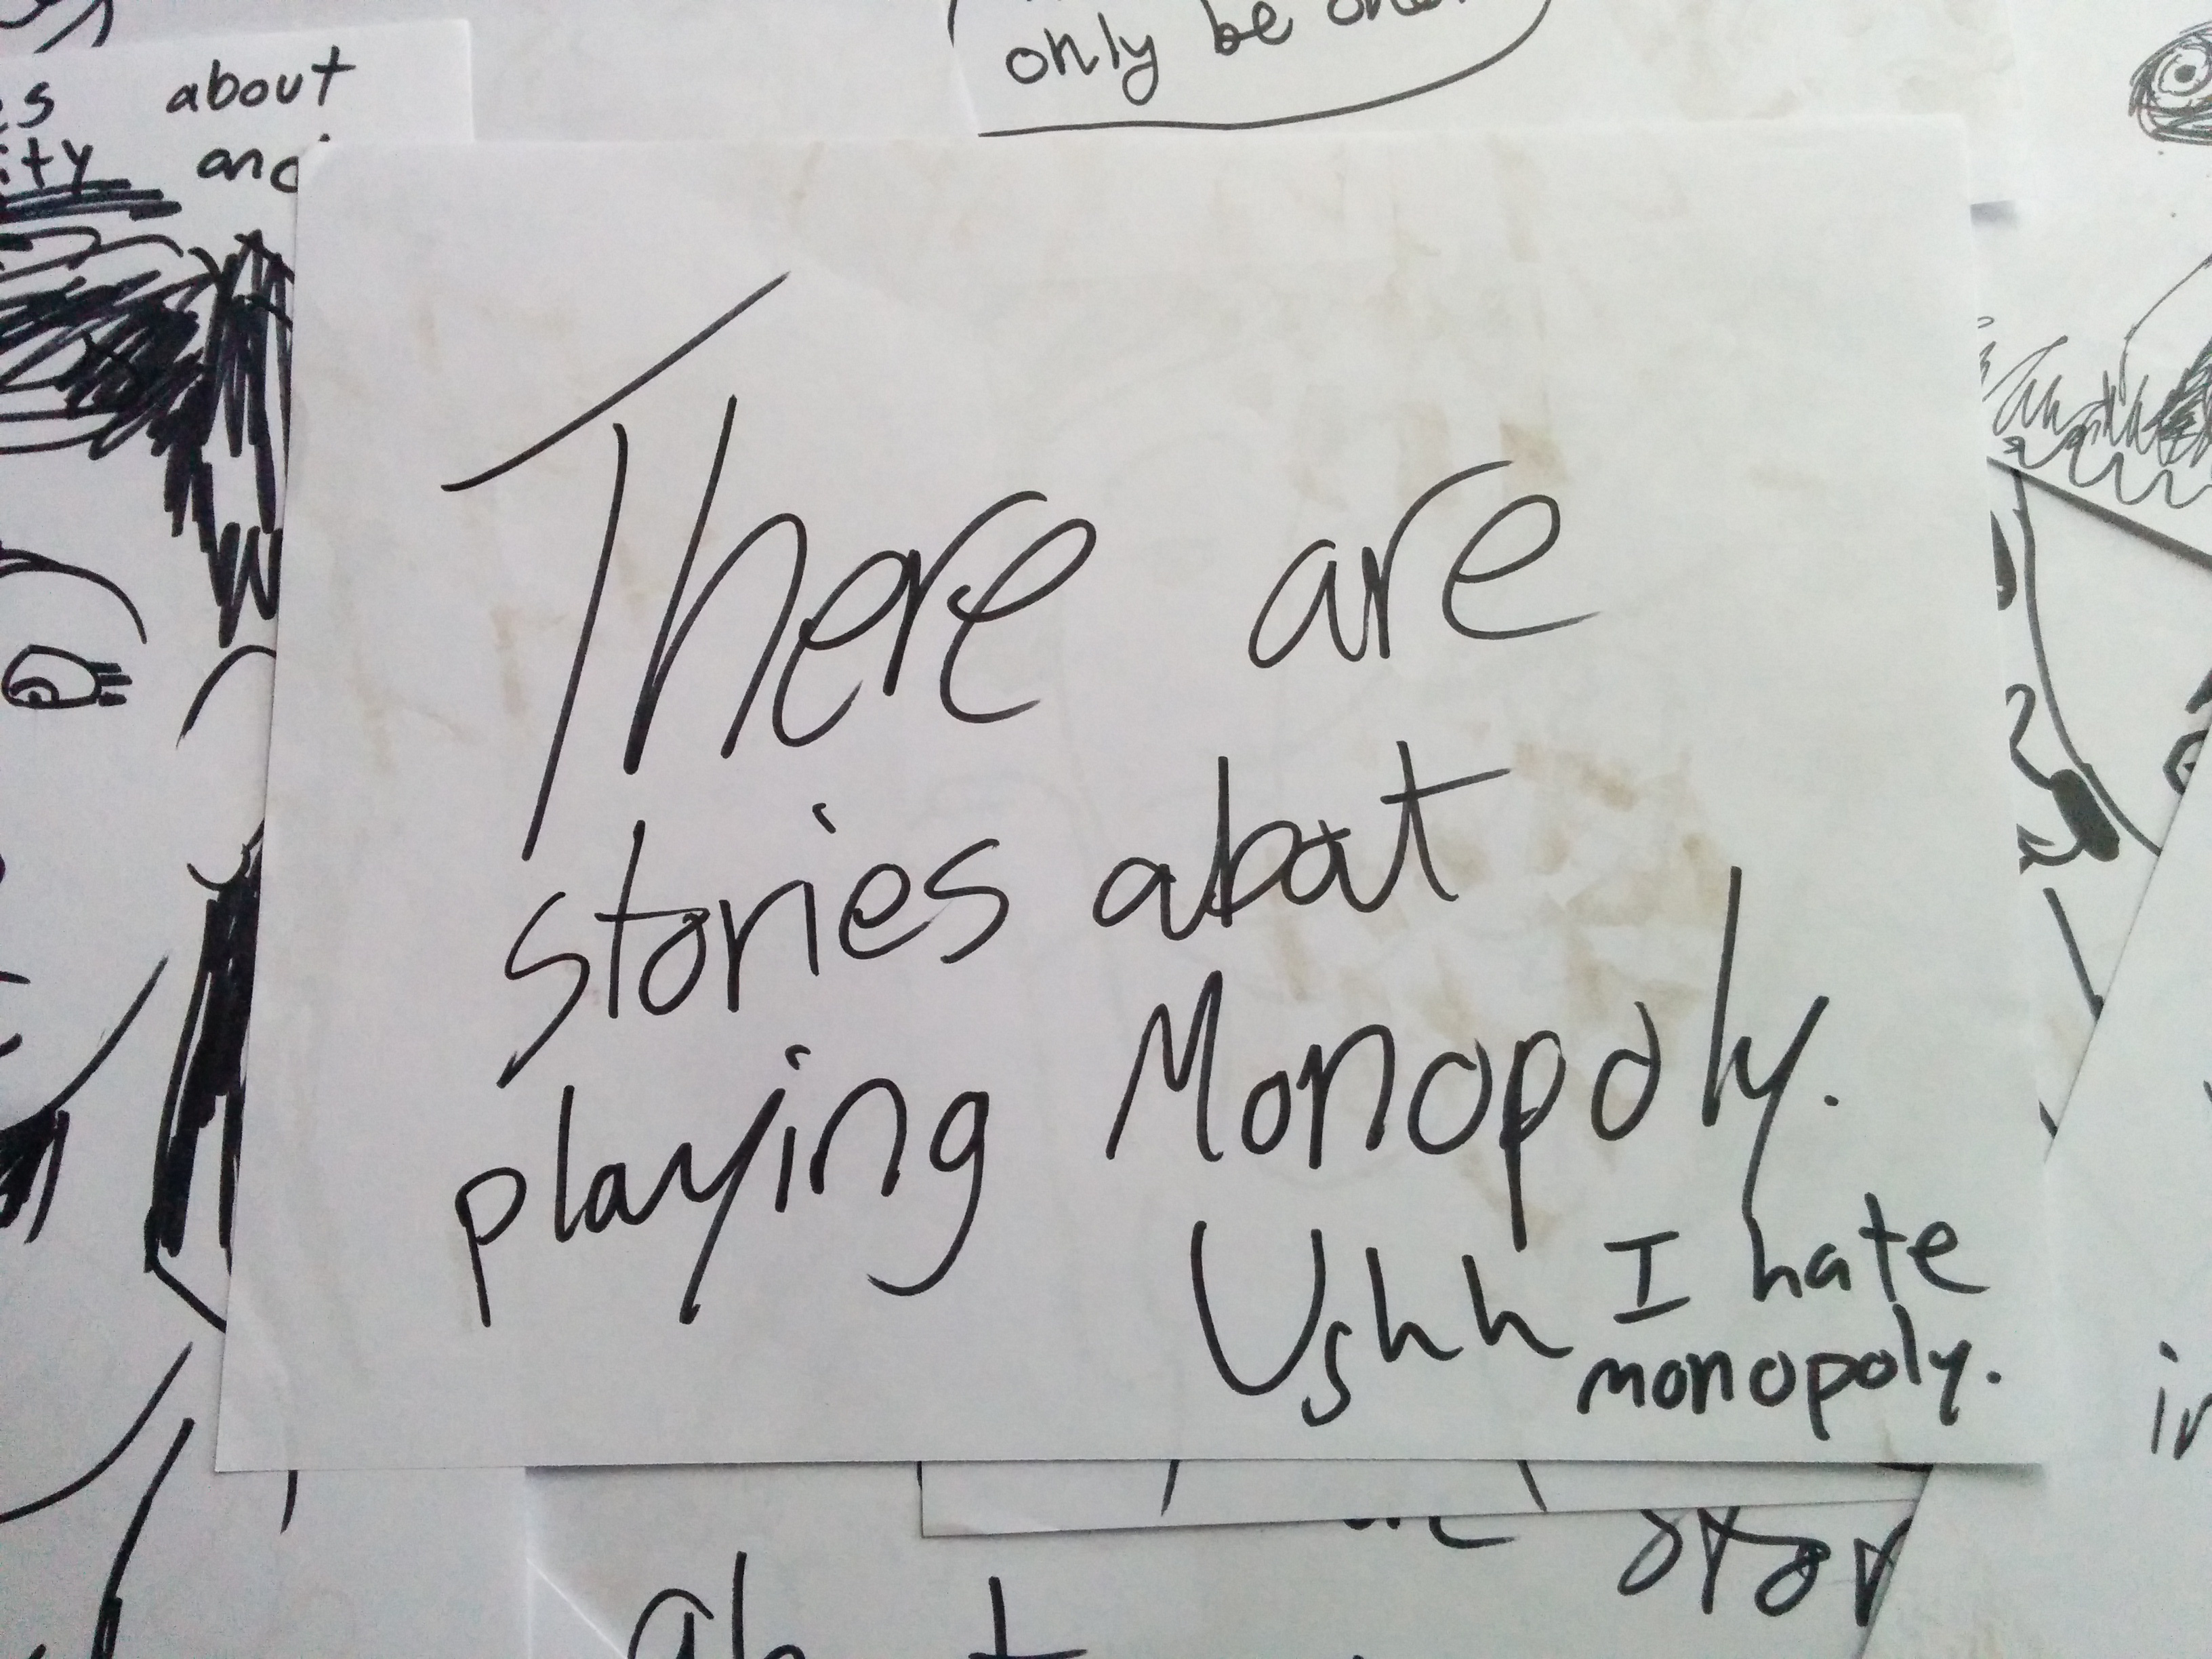 only be
about
and
There are
stories about
playing Monopoly.
Ughh I hate
monopoly.